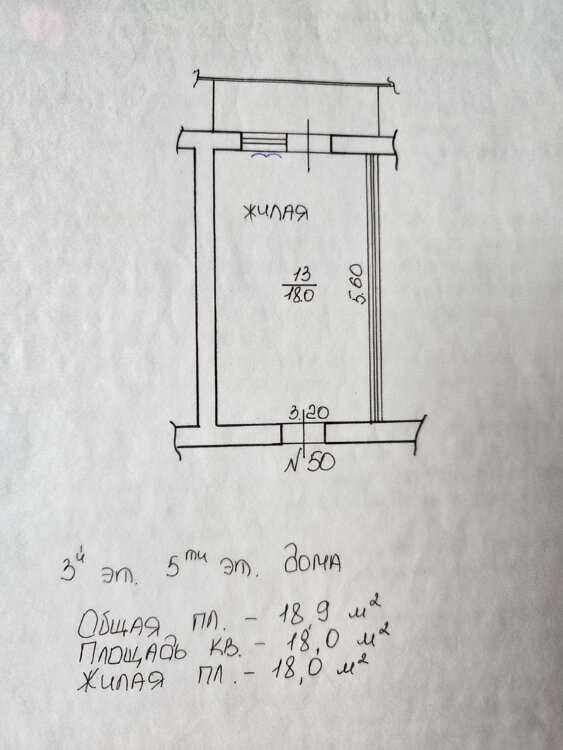 жилая
13
18.0
5.60
3.20
N 50
3й эт. 5ти эт. дома
Общая пл. - 18,9 м²
Площадь кв. - 18,0 м²
Жилая пл. - 18,0 м²